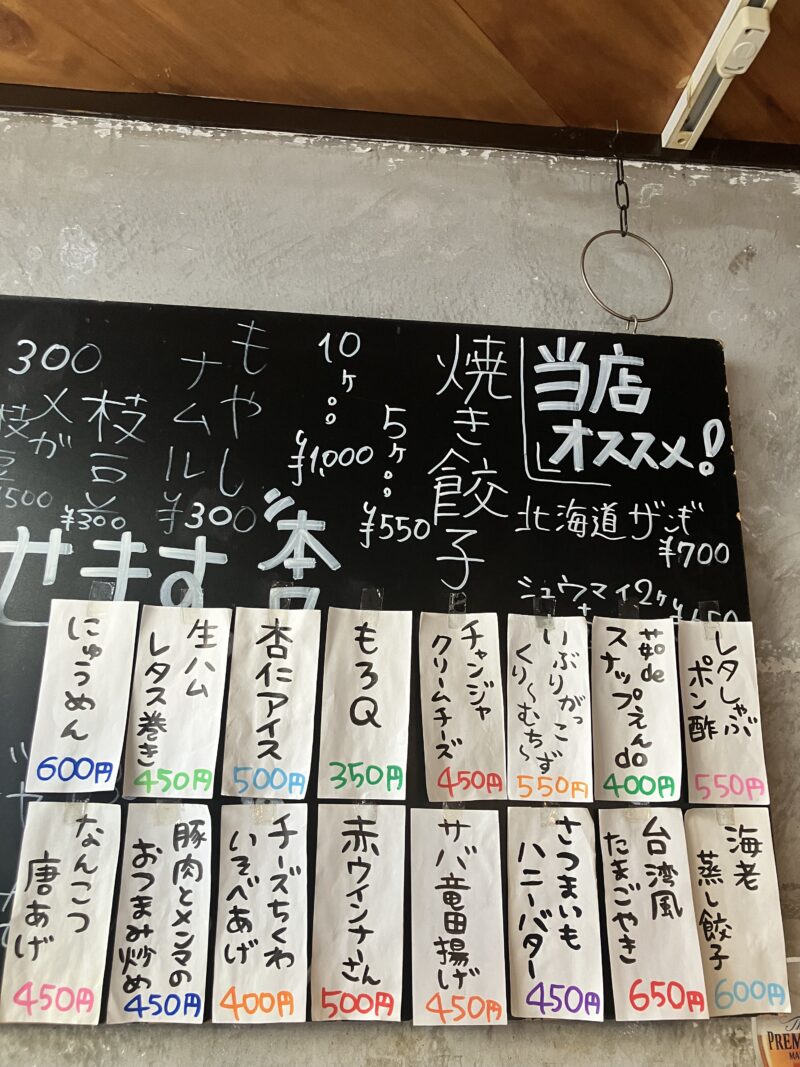 当店
オススメ!
北海道ザンギ
¥700
シュウマイ2ヶ
焼き餃子
5ヶ。。
¥550
10ヶ。。
¥1,000
もやし
ナムル
¥300
枝豆
¥300
メガ
枝豆
¥500
300
せます
レタしゃぶ
ポン酢
550円
茹de
スナップえんdo
400円
いぶりがっこ
くり〜むち〜ず
550円
チャンジャ
クリームチーズ
450円
もろQ
350円
杏仁アイス
500円
生ハム
レタス巻き
450円
にゅうめん
600円
海老
蒸し餃子
600円
台湾風
たまごやき
650円
さつまいも
ハニーバター
450円
サバ竜田揚げ
450円
赤ウインナーさん
500円
チーズちくわ
いそべあげ
400円
豚肉とメンマの
おつまみ炒め
450円
なんこつ
唐あげ
450円